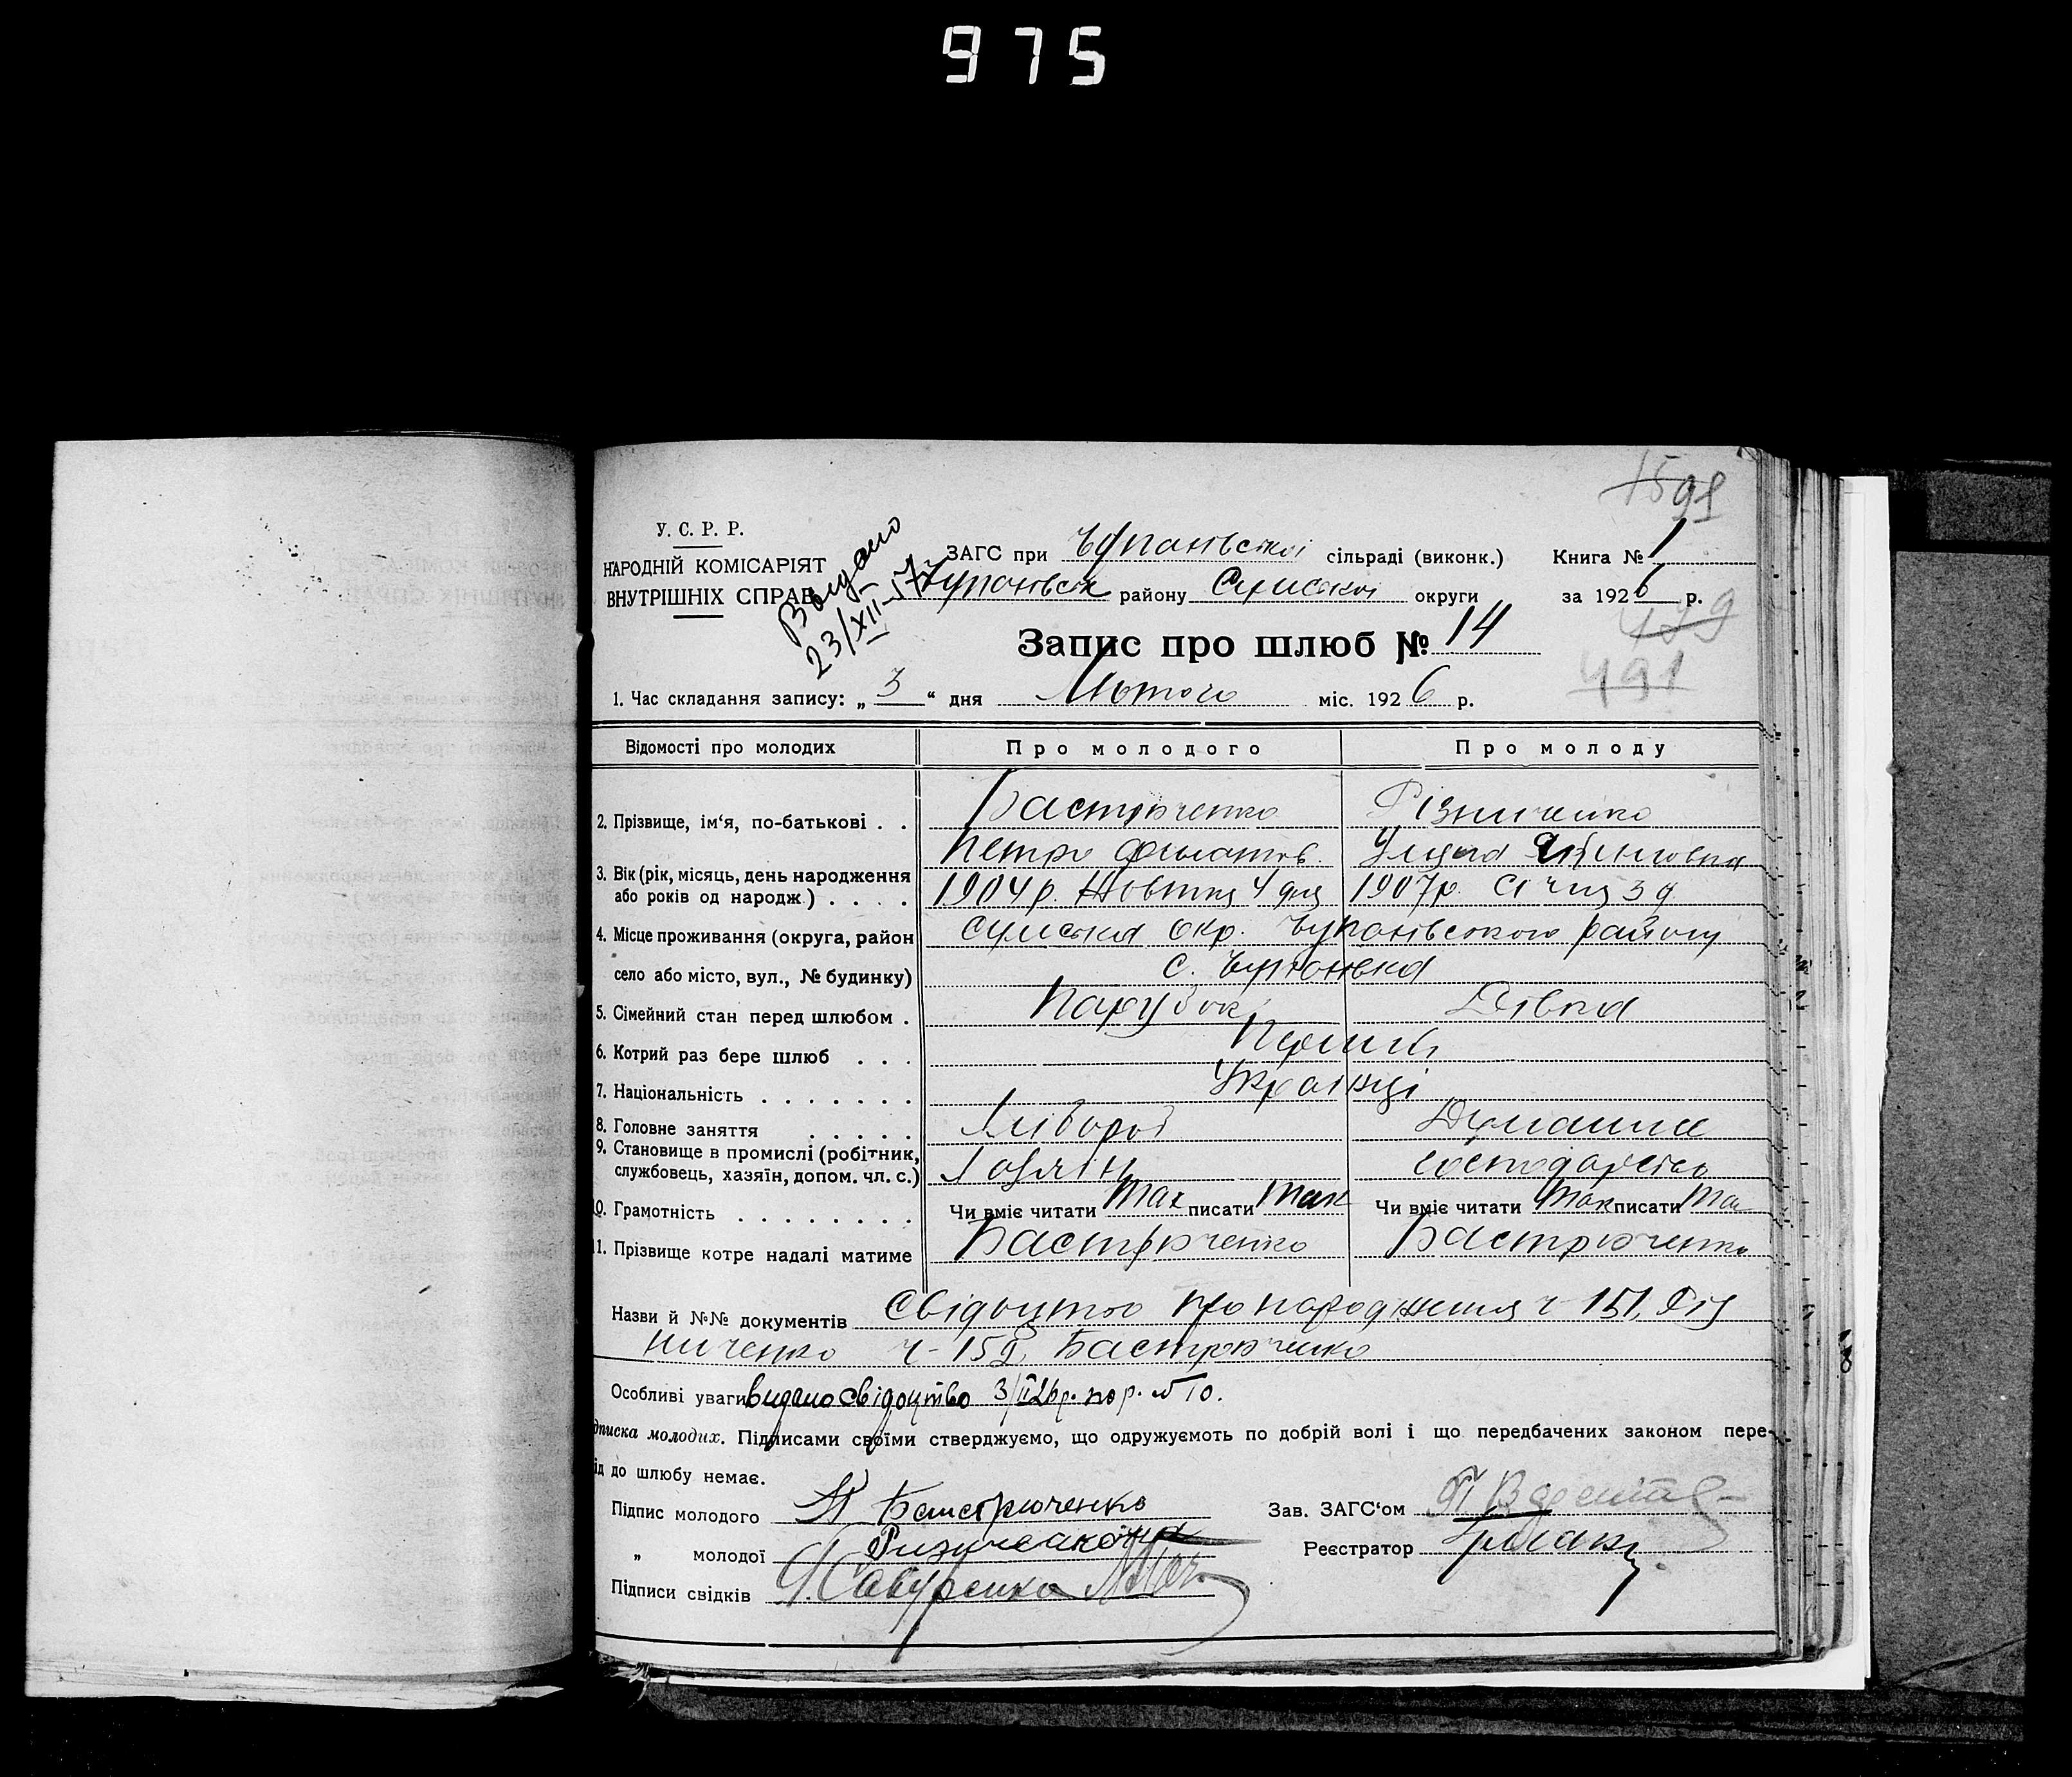 975
1598
У. С. Р. Р.
НАРОДНІЙ КОМІСАРІЯТ
ВНУТРІШНІХ СПРАВ
Выдано
23/XII-177
ЗАГС при Чупахівської сільраді (виконк.) Книга № 1
Чупахівськ району Сумської округи за 1926 р.
479
Запис про шлюб № 14
491
1. Час складання запису: „ 3 “ дня Лютого міс. 1926 р.
Відомості про молодих Про молодого Про молоду
2. Прізвище, ім‘я, по-батькові . . Бастрюченко Різниченко
Петро Филатов. Уляна
3. Вік (рік, місяць, день народження 1904 р. Жовтня 4 дня 1907 р. Січня 3 д.
або років од народж.) . . . .
4. Місце проживання (округа, район Сумська окр. Чупахівського району
село або місто, вул., № будинку) с. Чупахівка
5. Сімейний стан перед шлюбом . Парубок Дівка
6. Котрий раз бере шлюб . . . Перший
7. Національність . . . . . . . Українці
8. Головне заняття . . . . . Хлібороб Домашнє
9. Становище в промислі (робітник,
службовець, хазяїн, допом. чл. с.) Хазяїн господарство
10. Грамотність . . . . . . . . Чи вміє читати так писати так Чи вміє читати так писати так
11. Прізвище котре надалі матиме Бастрюченко Бастрюченко
Назви й №№ документів Свідоцтво про народження ч 151, Різ
ниченко ч-152 Бастрюченко
Особливі уваги видано свідоцтво 3/II 26 р. по р. № 10.
дписка молодих. Підписами своїми стверджуємо, що одружуємоть по добрій волі і що передбачених законом пере-
ід до шлюбу немає.
Підпис молодого П Бастрюченко Зав. ЗАГС‘ом
„ молодої Реєстратор
Підписи свідків